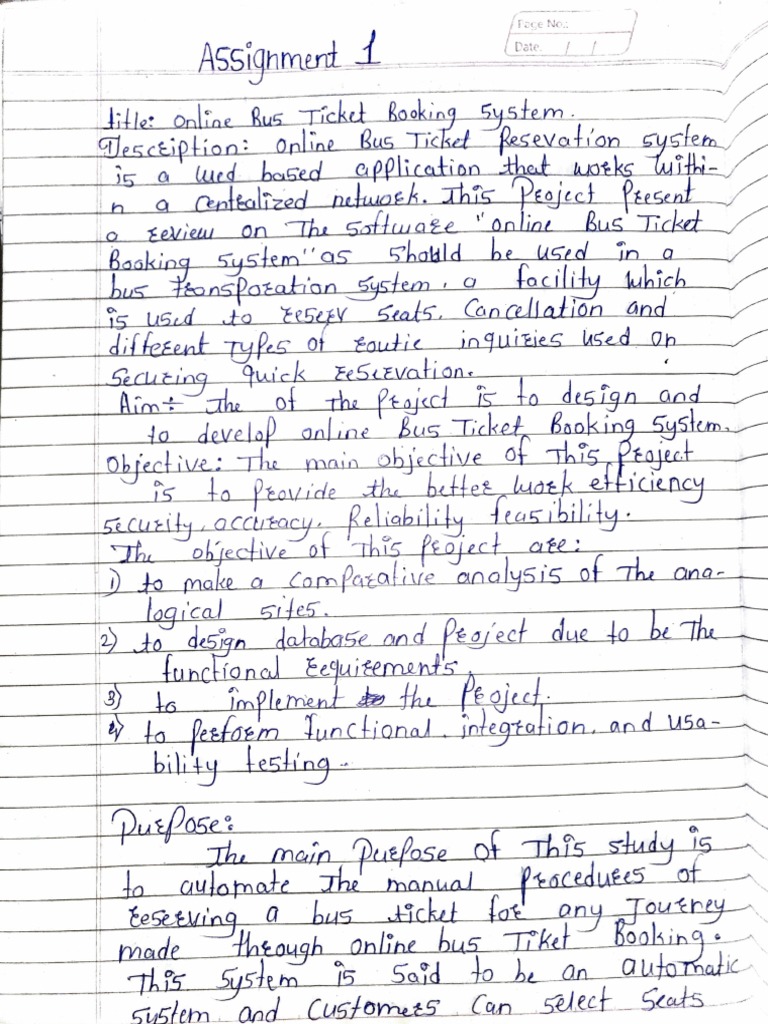 Page No.:
Date. / /
Assignment 1
title: Online Bus Ticket Booking System.
Description: Online Bus Ticket Resevation system
is a wed based application that works withi-
n a Centralized network. This Project Present
a review on The Software "online Bus Ticket
Booking System" as should be used in a
bus transporation System. a facility which
is used to reserv Seats. Cancellation and
different Types of routic inquiries used on
Securing quick reservation.
Aim: The of the Project is to design and
to develop online Bus Ticket Booking System.
Objective: The main objective of This Project
is to Provide the better work efficiency
security, accuracy. Reliability feasibility.
The objective of This Project are:
1) to make a Comparative analysis of The ana-
logical sites.
2) to design database and Project due to be The
functional Requirements.
3) to implement the Project.
4) to Perform functional, integration, and usa-
bility testing.
Purpose:
The main Purpose of This study is
to automate The manual Procedures of
reserving a bus ticket for any Journey
made through online bus Tiket Booking.
This System is Said to be an automatic
System and Customers Can select Seats